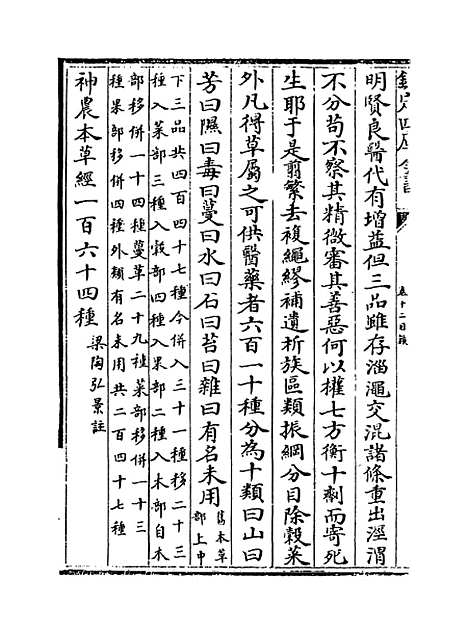 欽定四庫全書
卷十二目錄
明賢良醫代有增益但三品雖存淄澠交混諸條重出涇渭
不分苟不察其精微審其善惡何以權七方衡十劑而寄死
生耶于是翦繁去複繩繆補遺析族區類振綱分目除穀菜
外凡得草屬之可供醫藥者六百一十種分為十類曰山曰
芳曰隰曰毒曰蔓曰水曰石曰苔曰雜曰有名未用舊本草部上中
下三品共四百四十七種今併入三十一種移二十三
種入菜部三種入穀部四種入果部二種入木部自木
部移併一十四種蔓草二十九種菜部移併一十三
種果部移併四種外類有名未用共二百四十七種
神農本草經一百六十四種梁陶弘景註